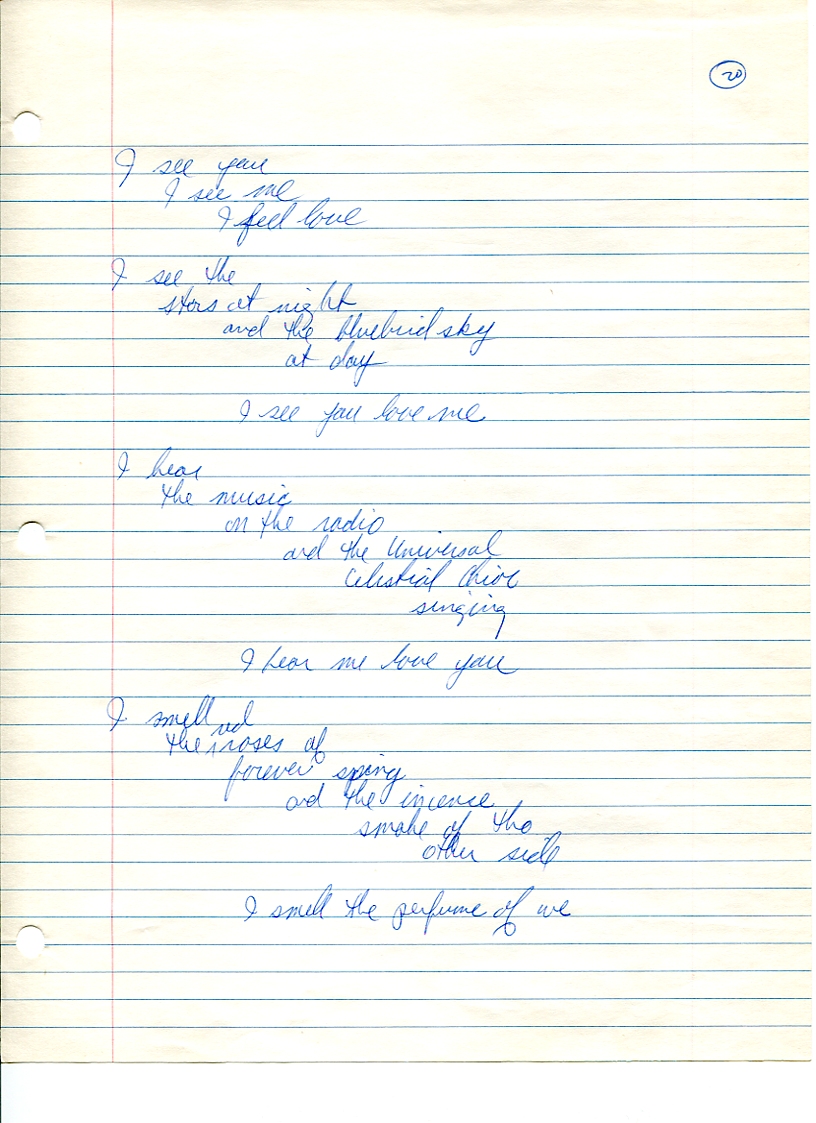 20
I see you
I see me
I feel love
I see the
stars at night
and the bluebird sky
at day
I see you love me
I hear
the music
on the radio
and the Universal
Celestial Chior
singing
I hear me love you
I smell
the red roses of
forever spring
and the incense
smoke of the
other side
I smell the perfume of we